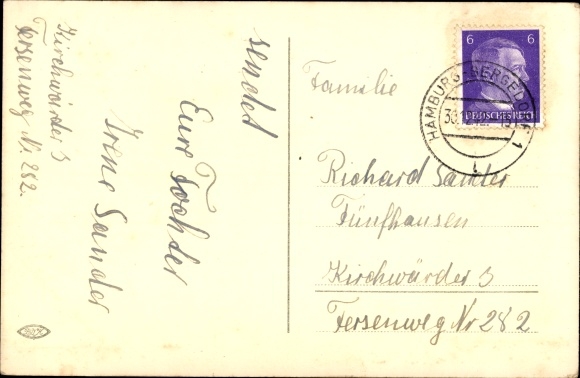 sendet
Eure Tochter
Irene Sander
Kirchwärder 3
Fersenweg Nr 282.
Familie
Richard Sander
Fünfhausen
Kirchwärder 3
Fersenweg Nr 282
6 6
DEUTSCHES REICH
HAMBURG-BERGEDORF 1